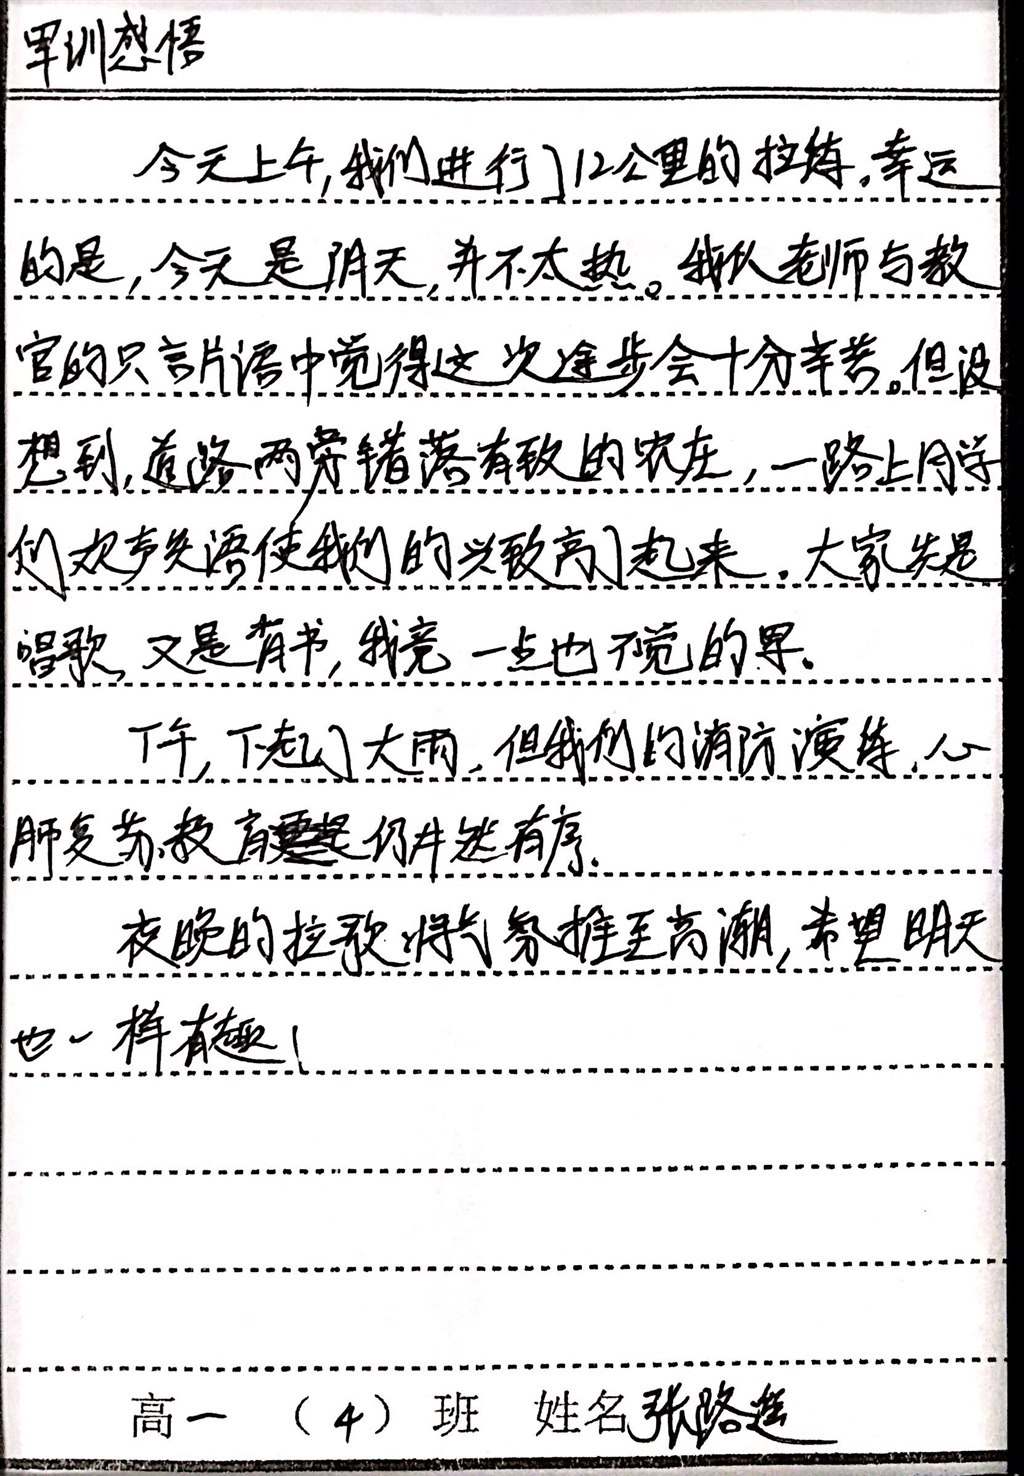 军训感悟
今天上午,我们进行了12公里的拉练。幸运
的是,今天是阴天,并不太热。我从老师与教
官的只言片语中觉得这次途步会十分辛苦。但没
想到,道路两旁错落有致的农庄,一路上同学
们欢声笑语使我们的兴致高了起来。大家先是
唱歌,又是背书,我竟一点也不觉的累。
下午,下起了大雨,但我们的消防演练,心
肺复苏教育仍井然有序。
夜晚的拉歌将气氛推至高潮,希望明天
也一样有趣!
高一 (4) 班 姓名张路